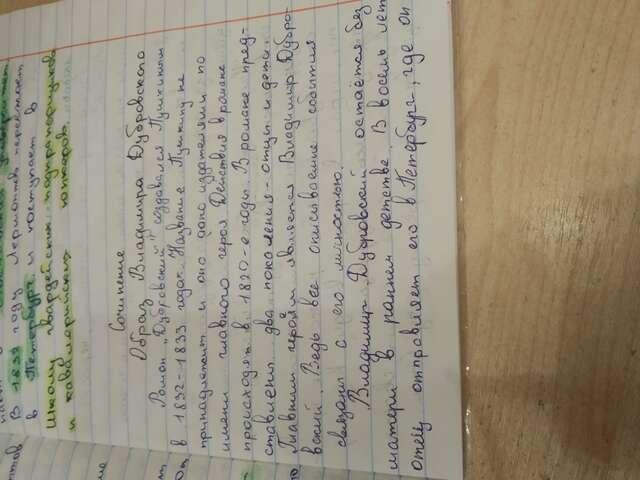 В 1832 году Лермонтов переезжает
в Петербург и поступает в
Школу гвардейских подпрапорщиков
и кавалерийских юнкеров.
Сочинение
Образ Владимира Дубровского
Роман "Дубровский" создавался Пушкиным
в 1832-1833 годах. Название Пушкину не
принадлежит и оно дано издателями по
имени главного героя. Действия в романе
происходят в 1820-е годы. В романе пред-
ставлены два поколения - отцы и дети.
Главным героям является Владимир Дубро-
вский. Ведь все описываемые события
связаны с его личностью.
Владимир Дубровский остаётся без
матери в раннем детстве. В восемь лет
отец отправляет его в Петербург, где он